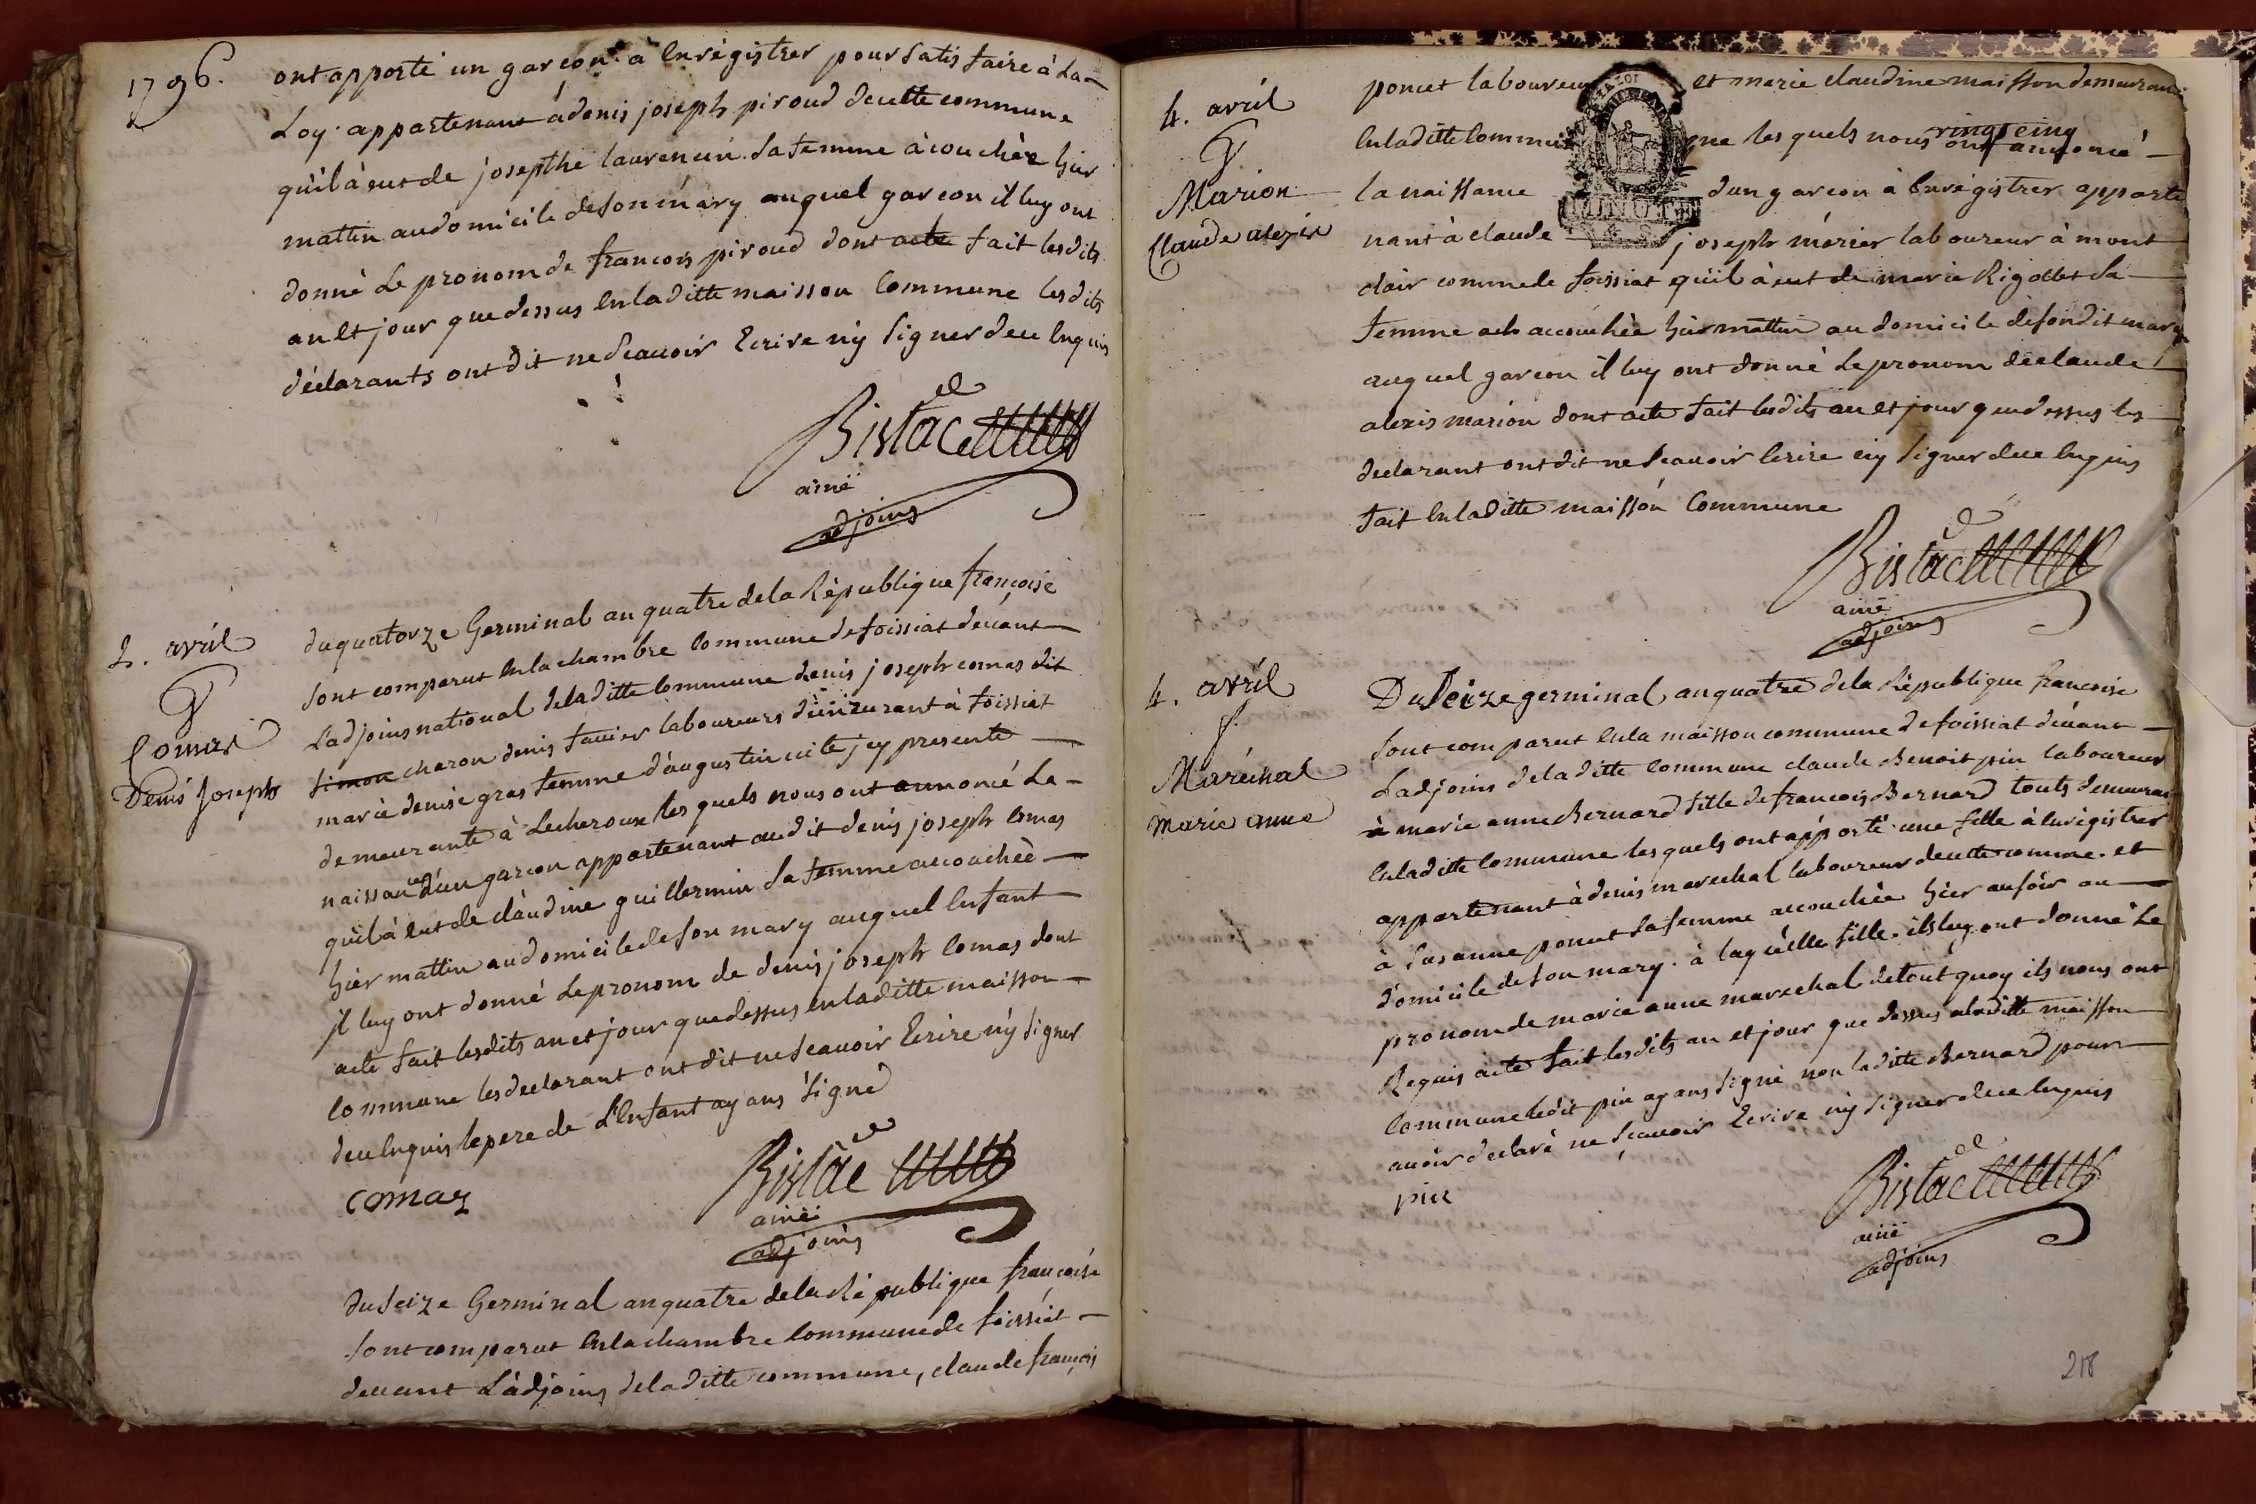 1796.
ont apporté un garçon à Enrégistrer pour satis faire à La
Loy. appartenant à denis joseph piroud de cette commune
qu'il à eut de josepthe laurencin sa femme àcouchée hier
mattin au domicile de son mary auquel garcon il luy ont
donné Le pronom de francois piroud dont acte fait lesdits
an et jour que dessus En laditte maisson Commune lesdits
déclarants ont dit ne scauoir Ecrire ny signer de ce Enquis
Bistac
ainé
adjoins
2. avril
G
Comas
Denis Joseph
du quatorze Germinal an quatre de la République françoise
sont comparut En la chambre Commune de foissiat deuant
L'adjoins national de la ditte Commune denis joseph comas dit
simon charon denis fauier laboureurs demeurant à foissiat
marie denise gras femme d'augustin jcy presente
demeurante à Lecheroux les quels nous ont annoncé La
naissance d'un garcon appartenant audit denis joseph Comas
qu'il à Eut de claudine guillermin sa femme accouchée
hier mattin au domicile de son mary auquel Enfant
jl luy ont donné Le pronom de denis joseph Comas dont
acte fait lesdits an et jour que dessus en laditte maisson
Commune les declarant ont dit ne scauoir Ecrire ny signer
de ce Enquis le pere de L'Enfant ayans signé
comaz
Bistac
ainé
adjoins
du seize Germinal an quatre de la République françoise
sont comparut En la chambre Commune de foissiat
deuant L'adjoins de la ditte commune, claude françois
4. avril
G
Marion
Claude alexis
poncet laboureur et marie claudine maisson demeurant
En laditte Commune les quels nous ont annoncé
la naissance d'un garcon à Enrégistrer apparte
nant à claude joseph marion laboureur à mont
clair comme de foissiat qu'il à eut de marie Rigollet sa
femme accouchée hier mattin au domicile de son dit mary
auquel garcon il luy ont donné Le pronom de claude
alexis marion dont acte fait lesdits an et jour que dessus les
declarant ont dit ne scauoir Ecrire ny signer de ce Enquis
fait En laditte maisson Commune
Bistac
ainé
adjoins
4. avril
f.
Maréchal
Marie anne
Du seize germinal an quatre de la République francoise
sont comparut En la maisson commune de foissiat deuant
L'adjoins de la ditte Commune claude Benoit pin laboureur
marie anne Bernard fille de francois Bernard touts demeurant
En laditte Commune les quels ont apporté une fille à Enregistrer
appartenant à denis marechal laboureur de cette comune et
à susanne poncet sa femme accouchée hier au soir au
domicile de son mary. à laquelle fille ils luy ont donné Le
pronom de marie anne marechal de tout quoy ils nous ont
Requis acte fait lesdits an et jour que dessus à laditte maisson
Commune ledit pin ayans signé non laditte Bernard pour
auoir declaré ne scauoir Ecrire ny signer de ce Enquis
pin
Bistac
ainé
adjoins
218